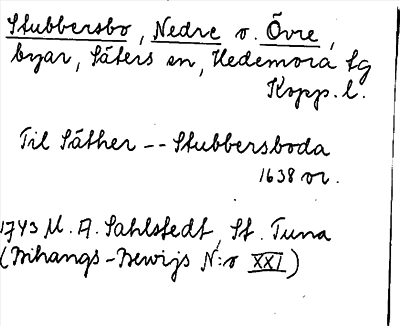 Stubbersbo, Nedre o. Övre,
byar, Säters sn, Hedemora tg
Kopp. l.
Til Säther -- Stubbersboda
1638 or.
1743 M. A. Sahlstedt, St. Tuna
(Bihangs-Bewijs N:o XXI)